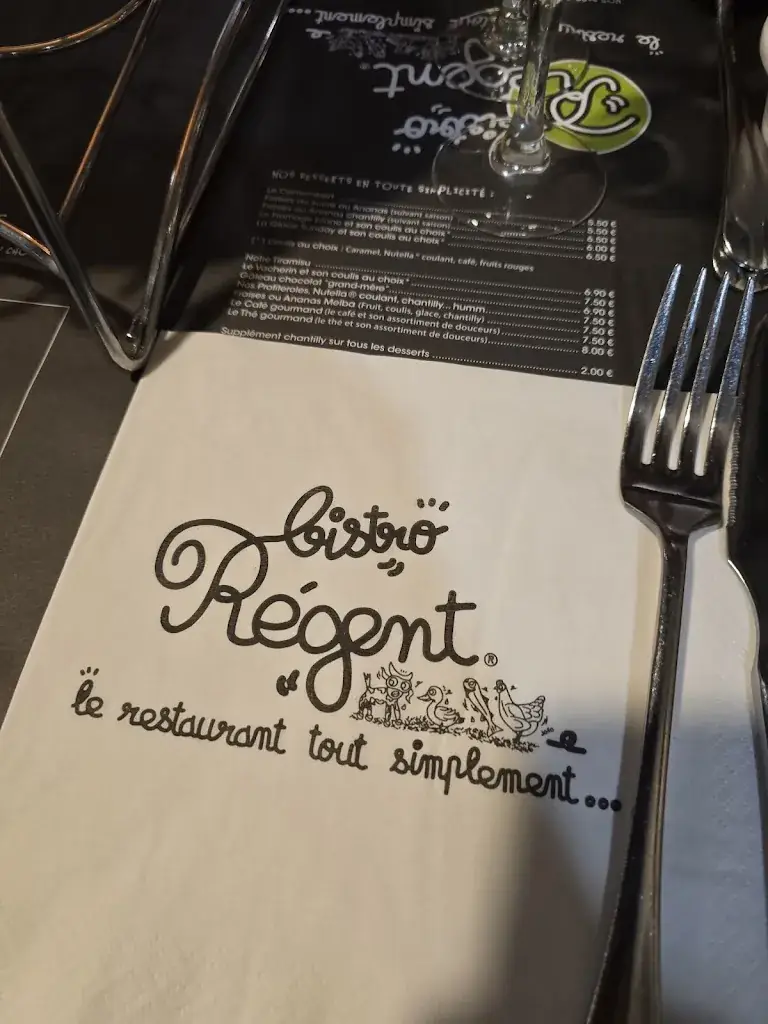 le restau tout simplement...
Régent
bistro
NOS DESSERTS EN TOUTE SIMPLICITÉ :
5.50 €
Ananas (suivant saison) 5.50 €
Ananas chantilly (suivant saison) 6.50 €
et son coulis au choix* 6.00 €
Sunday et son coulis au choix* 6.50 €
au choix : Caramel, Nutella® coulant, café, fruits rouges
Notre Tiramisu 6.90 €
Le Vacherin et son coulis au choix* 7.50 €
Gâteau chocolat "grand-mère" 6.90 €
Nos Profiteroles, Nutella® coulant, chantilly... humm 7.50 €
Fraises ou Ananas Melba (Fruit, coulis, glace, chantilly) 7.50 €
Le Café gourmand (le café et son assortiment de douceurs) 7.50 €
Le Thé gourmand (le thé et son assortiment de douceurs) 8.00 €
Supplément chantilly sur tous les desserts 2.00 €
bistro
Régent®
le restaurant tout simplement...